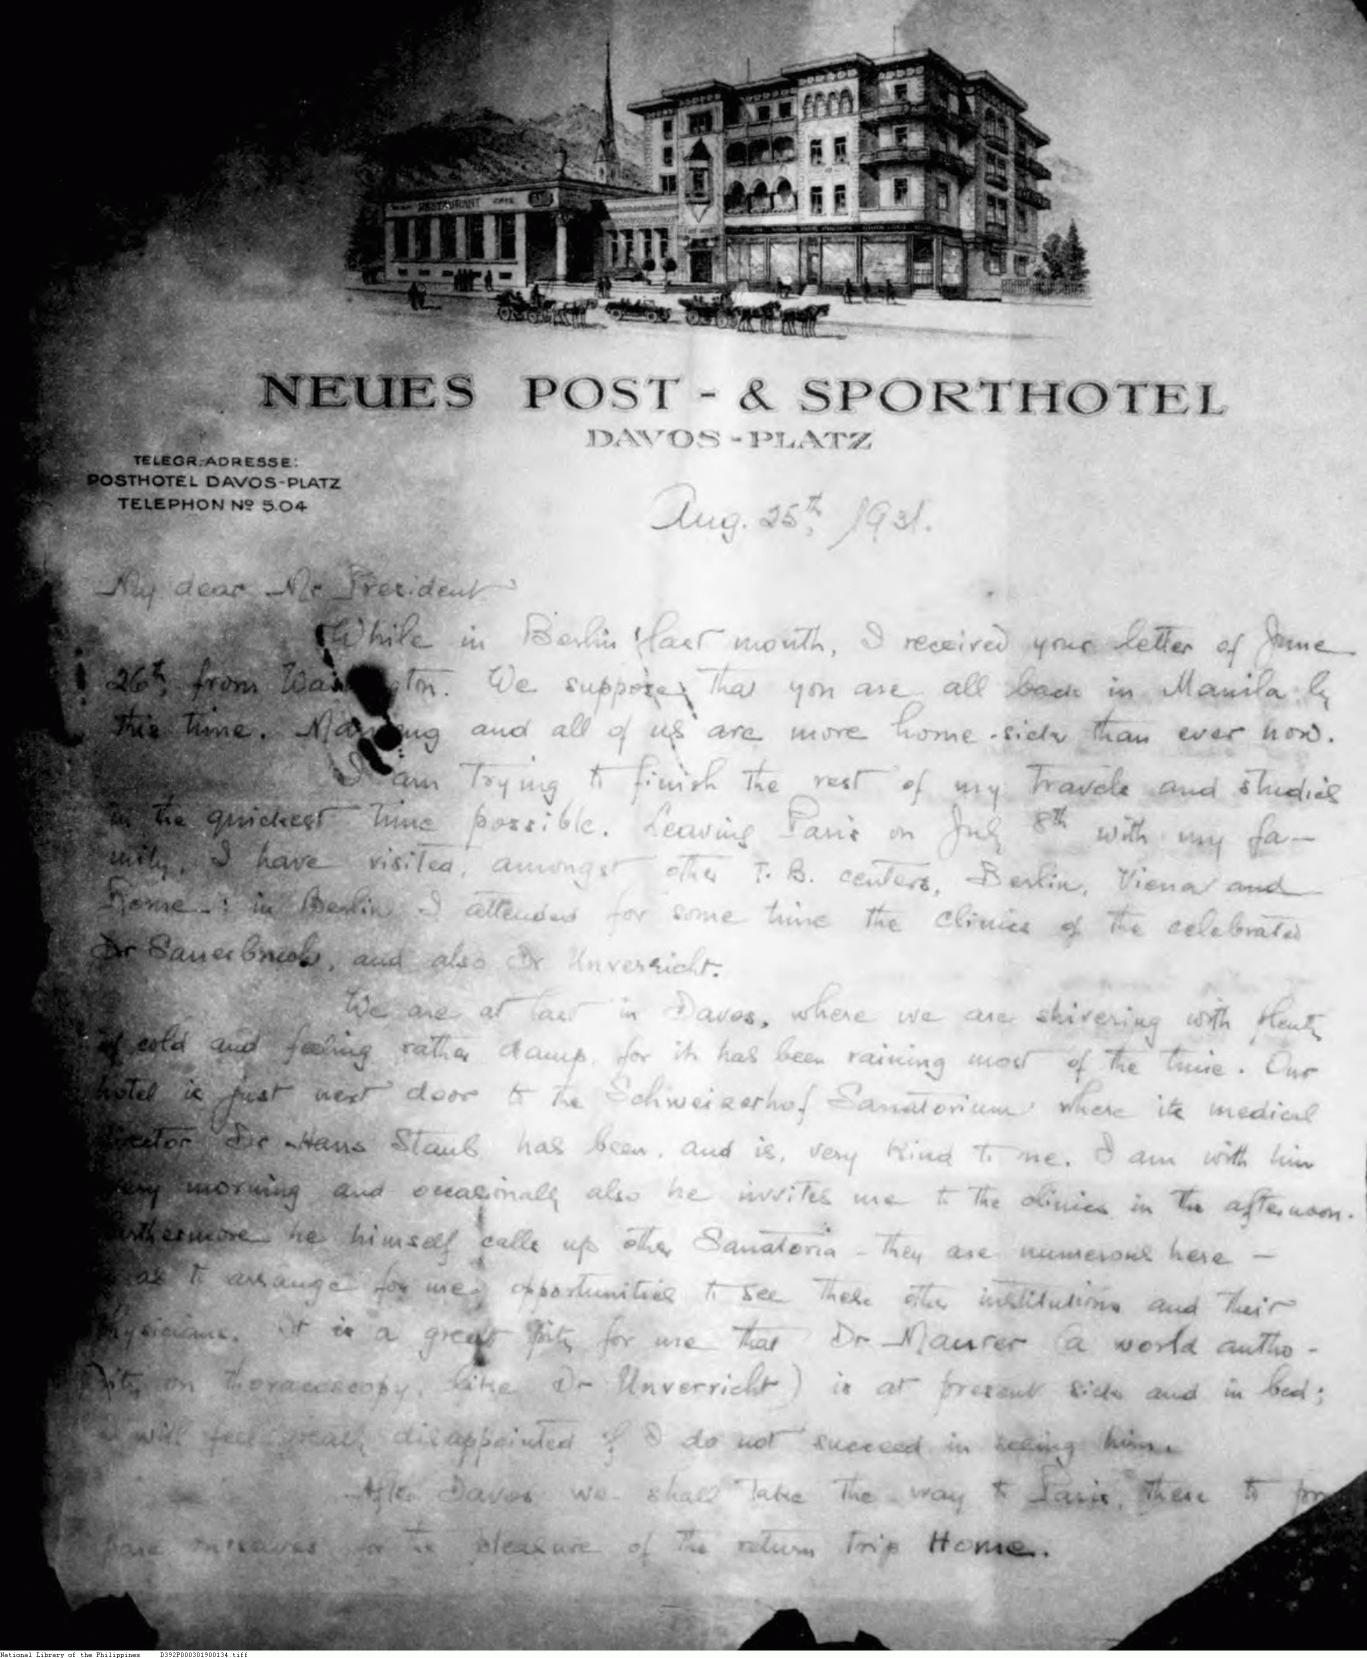 RESTAURANT
NEUES POST - & SPORTHOTEL
DAVOS - PLATZ
TELEGR. ADRESSE:
POSTHOTEL DAVOS-PLATZ
TELEPHON No 5.04
Aug. 25th, 1931.
My dear Mr President
While in Berlin last month, I received your letter of June
26th, from Washington. We suppose that you are all back in Manila by
this time. and all of us are more home-sick than ever now.
I am trying to finish the rest of my travels and studies
in the quickest time possible. Leaving Paris on July 8th with my fa-
mily, I have visited, amongst other T. B. centers, Berlin, Viena and
Rome: in Berlin I attended for some time the clinics of the celebrated
Dr Sauerbruch, and also Dr Unverricht.
We are at last in Davos, where we are shivering with plenty
of cold and feeling rather damp, for it has been raining most of the time. Our
hotel is just next door to the Schweizerhof Sanatorium where its medical
director Dr Hans Staub has been, and is, very kind to me. I am with him
every morning and occasionally also he invites me to the clinics in the afternoon.
Furthermore he himself calls up other Sanatoria - they are numerous here -
as to arrange for me opportunities to see these other institutions and their
physicians. It is a great pity for me that Dr Maurer (a world autho-
rity on thoracoscopy, like Dr Unverricht) is at present sick and in bed;
I will feel greatly disappointed if I do not succeed in seeing him.
After Davos we shall take the way to Paris, there to pre
pare ourselves for the pleasure of the return trip Home.
National Library of the Philippines D392P000301900134.tiff